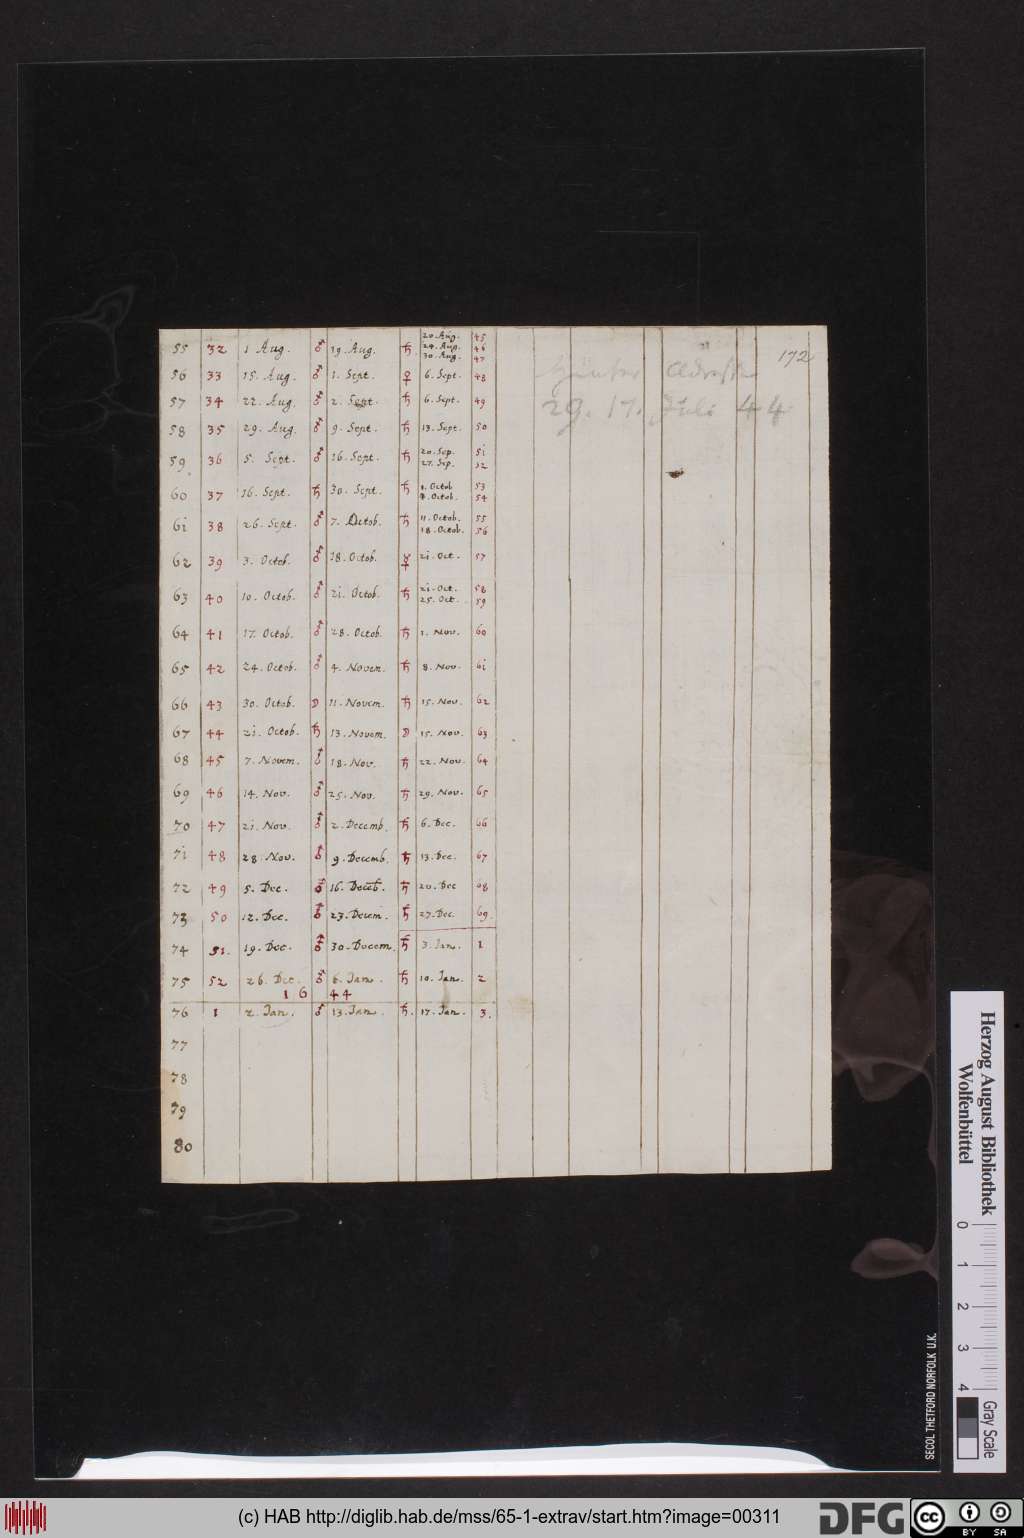 172
29. 17. Juli 44
55 32 1 Aug. ♂ 19. Aug. ♄ 20. Aug. 45
24. Aug. 46
30. Aug. 47
56 33 15. Aug. ♂ 1. Sept. ♀ 6. Sept. 48
57 34 22. Aug. ♂ 2. Sept. ♄ 6. Sept. 49
58 35 29. Aug. ♂ 9. Sept. ♄ 13. Sept. 50
59. 36 5. Sept. ♂ 16. Sept. ♄ 20. Sep. 51
27. Sep. 52
60 37 16. Sept. ♄ 30. Sept. ♄ 1. Octob. 53
8. Octob. 54
61 38 26. Sept. ♂ 7. Octob. ♄ 11. Octob. 55
18. Octob. 56
62 39 3. Octob. ♂ 18. Octob. ☿ 21. Oct. 57
63 40 10. Octob. ♂ 21. Octob. ♄ 21. Oct. 58
25. Oct. 59
64 41 17. Octob. ♂ 28. Octob. ♄ 1. Nov. 60
65 42 24. Octob. ♂ 4. Novem. ♄ 8. Nov. 61
66 43 30. Octob. ☽ 11. Novem. ♄ 15. Nov. 62
67 44 21. Octob. ♄ 13. Novem. ☽ 15. Nov. 63
68 45 7. Novem. ♂ 18. Nov. ♄ 22. Nov. 64
69 46 14. Nov. ♂ 25. Nov. ♄ 29. Nov. 65
70 47 21. Nov. ♂ 2. Decemb. ♄ 6. Dec. 66
71 48 28. Nov. ♂ 9. Decemb. ♄ 13. Dec. 67
72 49 5. Dec. ♂ 16. Decēb. ♄ 20. Dec 68
73 50 12. Dec. ♂ 23. Decem. ♄ 27. Dec. 69.
74 51. 19. Dec. ♂ 30. Decem. ♄ 3. Jan. 1
75 52 26. Dec. ♂ 6. Jan. ♄ 10. Jan. 2
1 6 44
76 1 2. Jan. ♂ 13. Jan. ♄. 17. Jan. 3.
77
78
79
80
Herzog August Bibliothek
Wolfenbüttel
0 1 2 3 4
Gray Scale
SECOL THETFORD NORFOLK U.K.
(c) HAB http://diglib.hab.de/mss/65-1-extrav/start.htm?image=00311
DFG
cc
BY SA